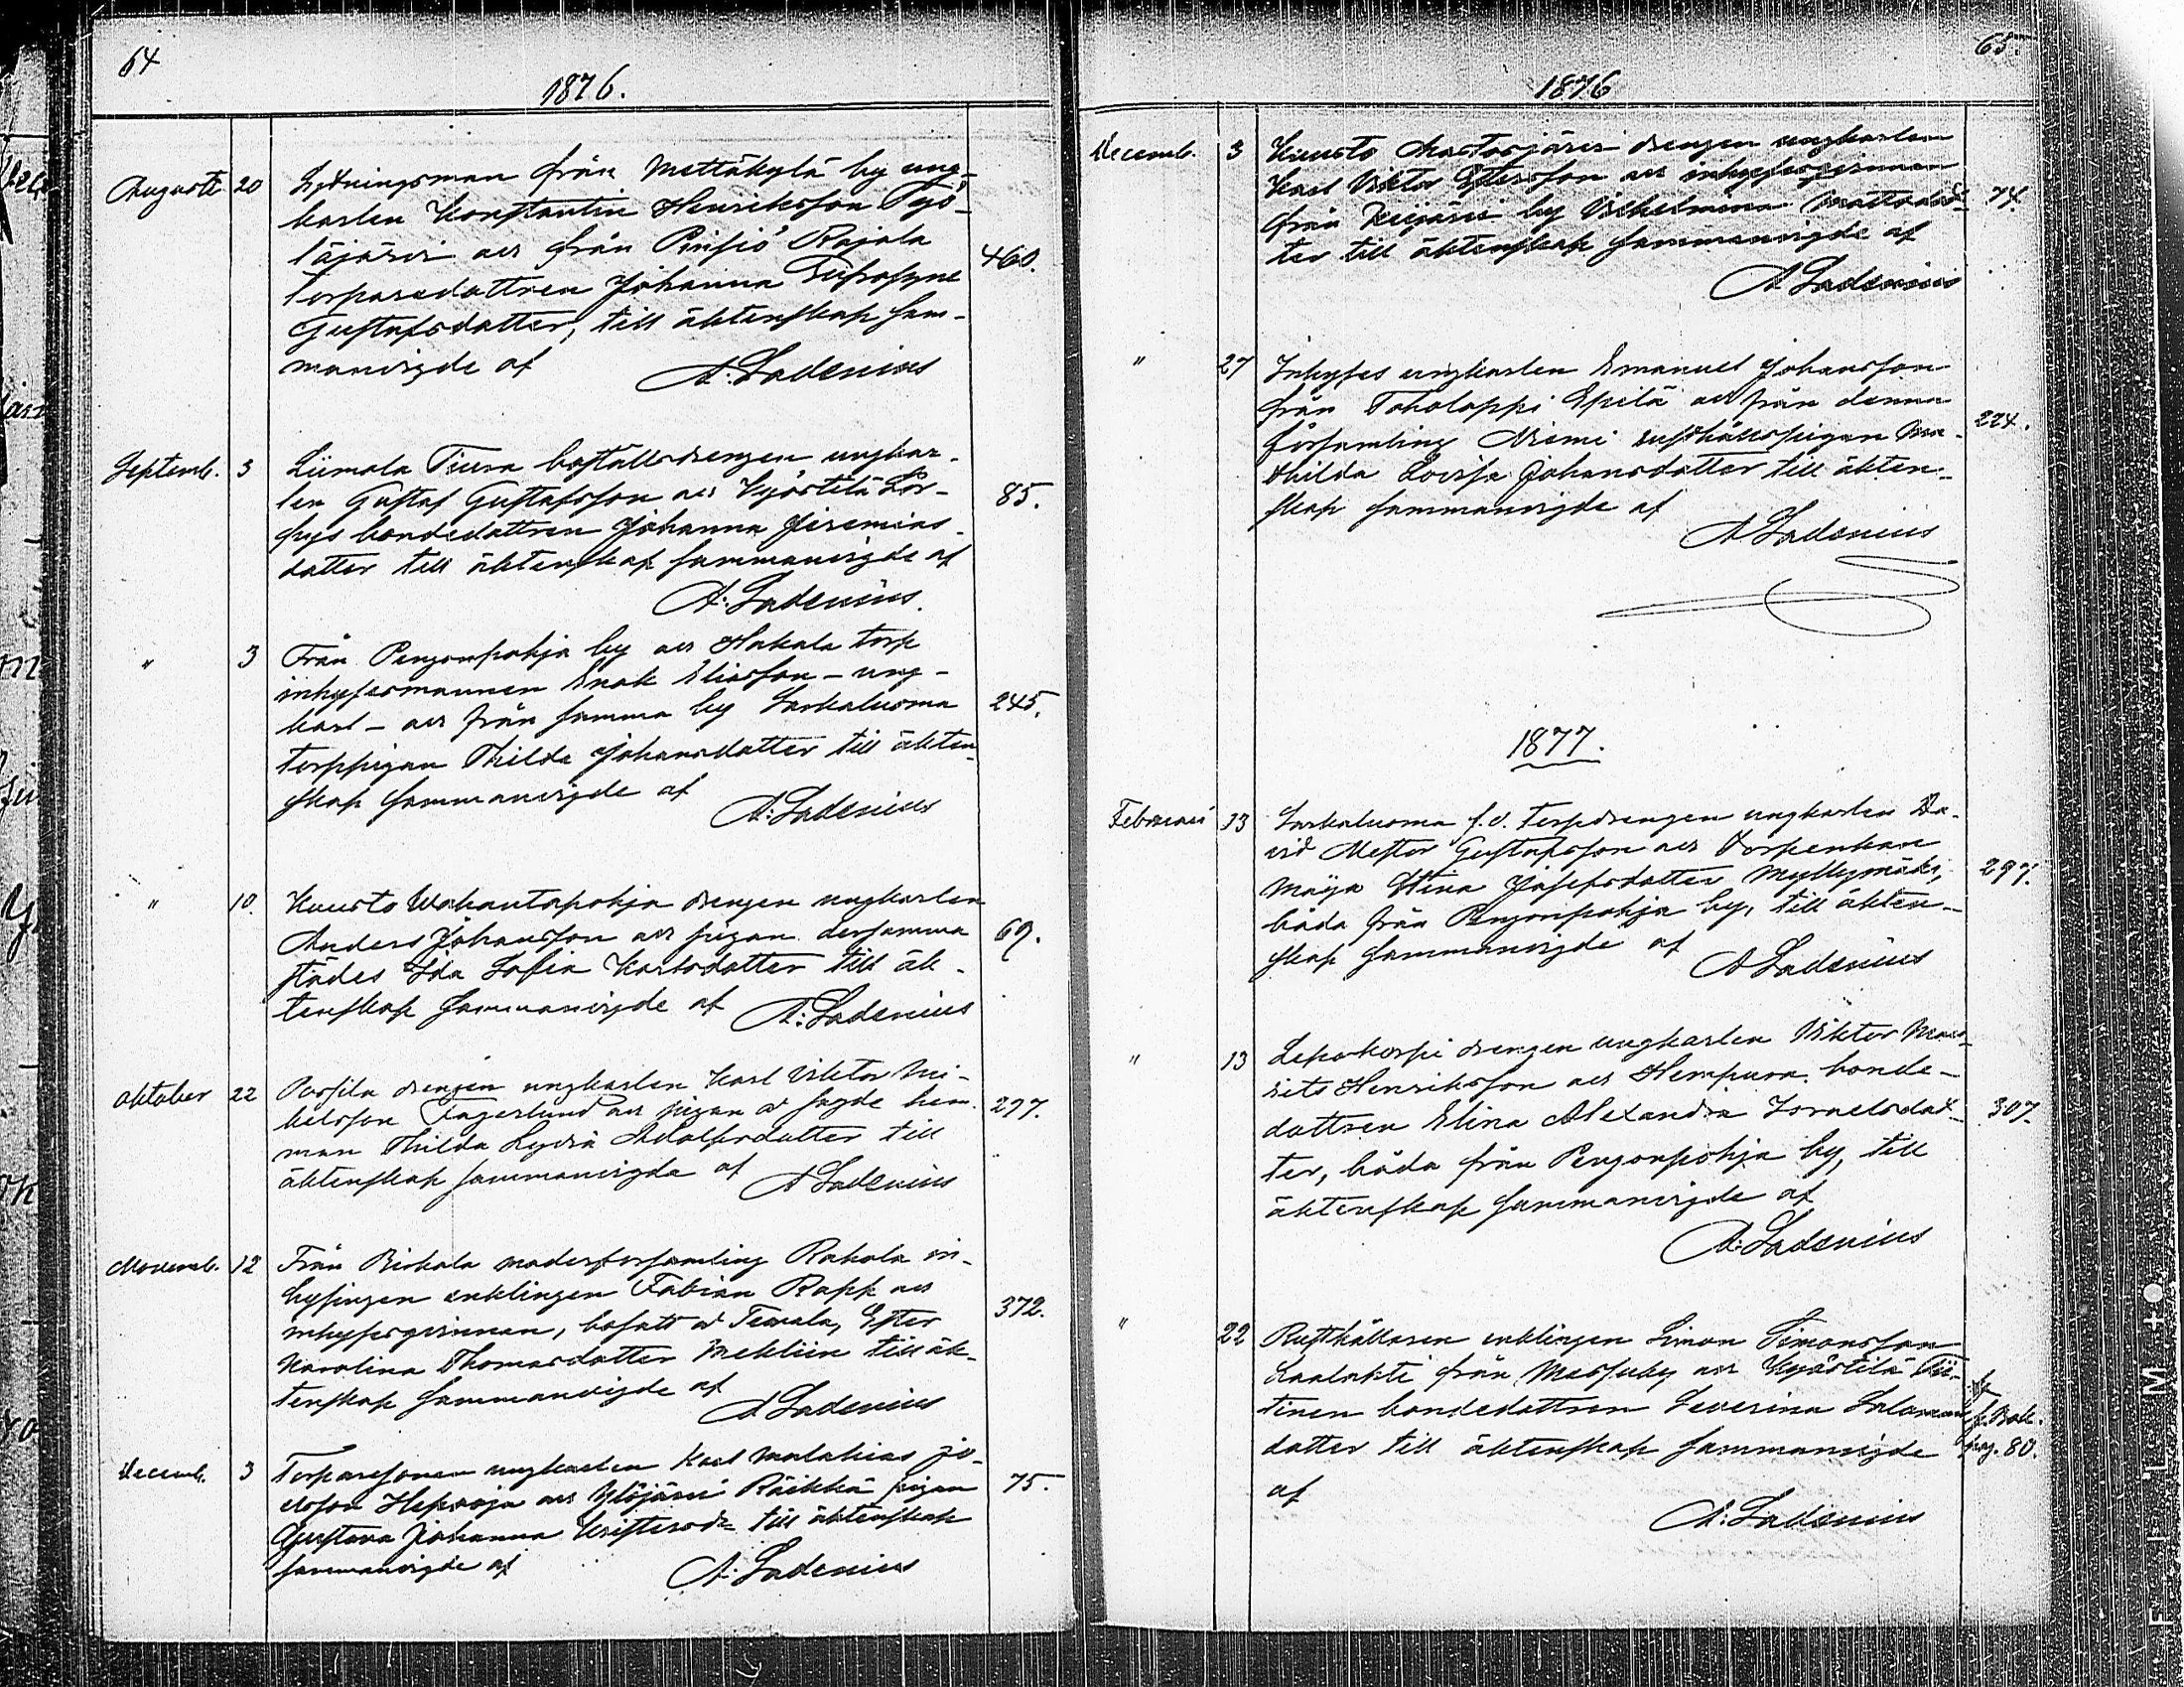 64
1876.
Augusti 20 Lysningsman från Mettäkylä by ung-
karlen Konstantin Henriksson Pyö-
läjärvi och från Pinsiö Rajala 460.
torparedottren Johanna Eufrosyne
Gustafsdotter, till äktenskap sam-
manvigde af A. Ladenius
Septemb. 3 Liimola Tiura boställsdrengen ungkar-
len Gustaf Gustafsson och Kyöstilä Lör- 85.
bondedottren Johanna Jeremias-
dotter till äktenskap sammanvigde af
A. Ladenius.
" 3 Från Pengonpohja by och Hakala torp
inhysesmannen Enok Eliasson – ung-
karl – och från samma by Sarkaluoma 245.
torppigan Thilda Johansdotter till äkten-
skap sammanvigde af A. Ladenius
" 10. Kuusto Wahantapohja drengen ungkarlen
Anders Johansson och pigan dersamma 69.
städes Ida Sofia Karlsdotter till äk-
tenskap sammanvigde af A. Ladenius
Oktober 22 Porsila drengen ungkarlen Karl Viktor Mi-
kelsson Fagerlund och pigan å sagde hem- 297.
man Thilda Lydia Adolfsdotter till
äktenskap sammanvigde af A Ladenius
Novemb. 12 Från Birkala moderförsamling Rahola in-
hysingen enklingen Fabian Rapp och
inhysesqvinnan, bosatt å Teivala, Ester 372.
Karolina Thomasdotter Meklin till äk-
tenskap sammanvigde af A Ladenius
Decemb. 3 Torparesonen ungkarlen Karl Malakias Jo-
elsson Heporoja och Ylöjärvi Räikkä pigan 75.
Gustava Johanna Kristersdr till äktenskap
sammanvigde af A. Ladenius
65.
1876
Decemb. 3 Kuusto drengen ungkarlen
Karl Viktor och inhysesqvinnan
från Keijärvi by Vilhelmina Mattsdot- 74.
ter till äktenskap sammanvigde af
A Ladenius
" 27 Inhyses ungkarlen Emanuel Johansson
från Toholoppi Epilä och från denna
församling Niemi rusthållspigan Ma- 224.
thilda Lovisa Johansdotter till äkten-
skap sammanvigde af
A Ladenius
1877.
Februari 13 Sarkaluoma f.d. torpdrengen ungkarlen Da-
vid Nestor Gustafsson och torpenkan
Maija Stina Josefsdotter Myllymäki, 297.
båda från Pengonpohja by, till äkten-
skap sammanvigde af A Ladenius
" 13 Lepokorpi drengen ungkarlen Viktor Mau-
rits Henriksson och Hempura bonde-
dottren Elina Alexandra Israelsdot- 307.
ter, båda från Pengonpohja by, till
äktenskap sammanvigde af
A. Ladenius
" 22 Rusthållaren enklingen Simon Simonsson
Laalahti från Massuby och Kyöstilä Tii-
tinen bondedottren Severina Salomons- f. Bok.
dotter till äktenskap sammanvigde pag. 80.
af
A. Ladenius
F I L M